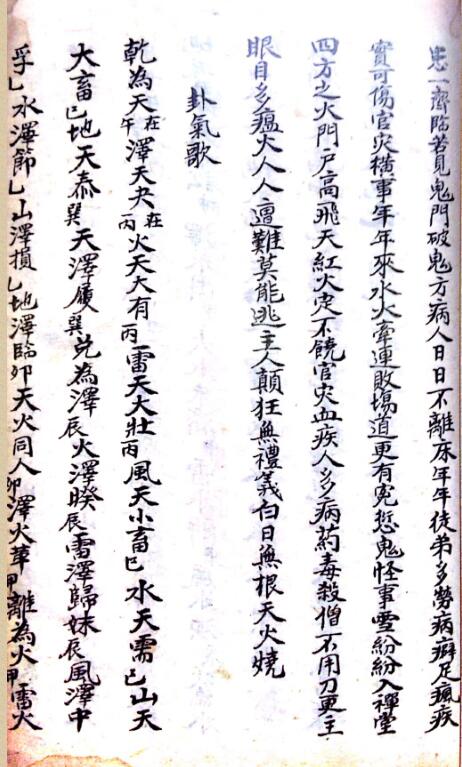 患一齊臨若見鬼門破鬼方病人日日不離床年年徒弟多勞病癖足瘋疾
實可傷官灾横事年年來水火牽連敗塲道更有寃愆鬼怪事雪紛紛入禪堂
四方之火門户高飛天紅火定不饒官灾血疾人多病葯毒殺僧不用刀更主
眼目多瘟火人人遭難莫能逃主人顛狂無禮義白日無根天火燒
卦氣歌
乾為天在午澤天夬在丙火天大有丙雷天大壯丙風天小畜巳水天需巳山天
大畜巳地天泰巽天澤履巽兑為澤辰火澤睽辰雷澤歸妹辰風澤中
孚乙水澤節乙山澤損乙地澤臨卯天火同人卯澤火革甲離為火甲雷火